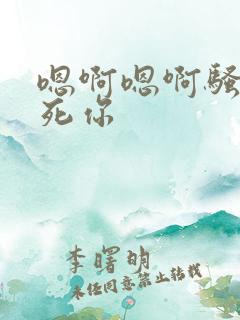 嗯啊嗯啊骚
死你
李曙明
未经同意禁止转载